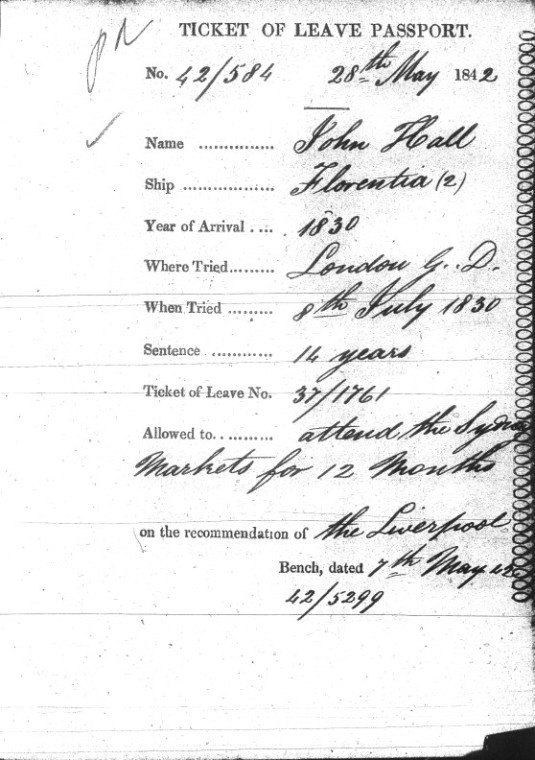 TICKET OF LEAVE PASSPORT.
No. 42/584 28th May 1842
Name ............... John Hall
Ship .................. Florentia (2)
Year of Arrival .... 1830
Where Tried.......... London G. D.
When Tried ......... 8th July 1830
Sentence ............ 14 years
Ticket of Leave No. 37/1761
Allowed to........... attend the Sydney
Markets for 12 Months
on the recommendation of the Liverpool
Bench, dated 7th May 42
42/5299